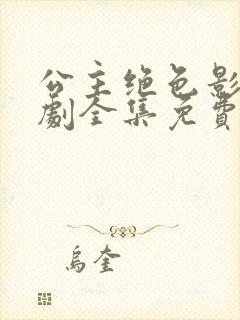 公主绝色影
劇全集免費
烏奎